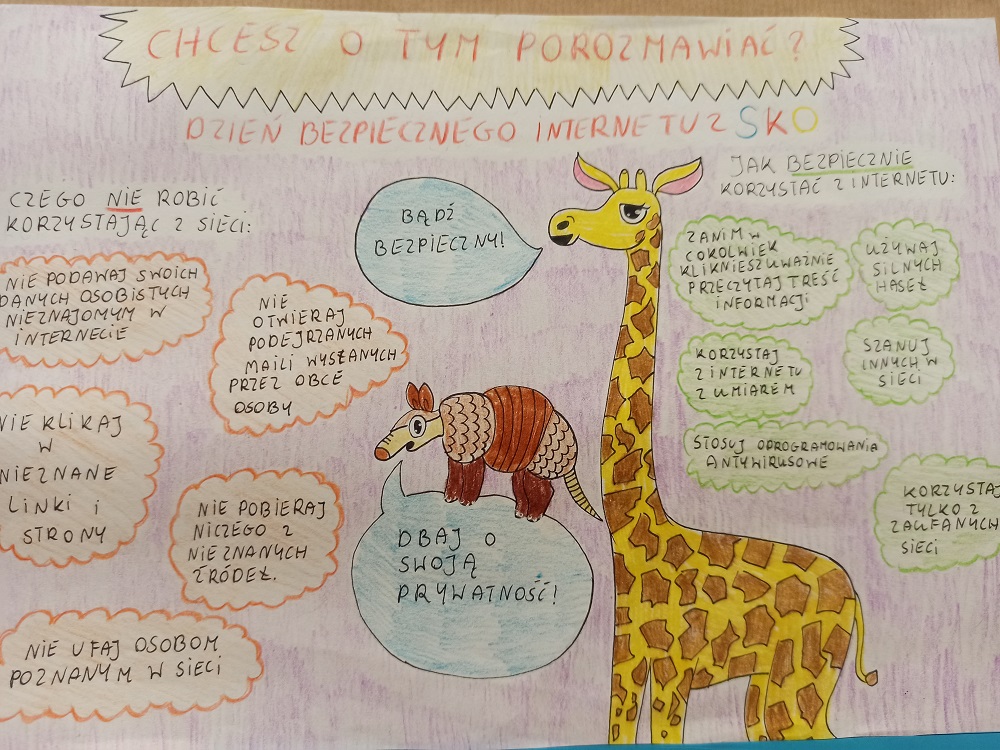 CHCESZ O TYM POROZMAWIAĆ?
DZIEŃ BEZPIECZNEGO INTERNETU Z SKO
CZEGO NIE ROBIĆ
KORZYSTAJĄC Z SIECI:
NIE PODAWAJ SWOICH
DANYCH OSOBISTYCH
NIEZNAJOMYM W
INTERNECIE
NIE
OTWIERAJ
PODEJRZANYCH
MAILI WYSŁANYCH
PRZEZ OBCE
OSOBY
NIE KLIKAJ
W
NIEZNANE
LINKI i
STRONY
NIE POBIERAJ
NICZEGO Z
NIEZNANYCH
ŹRÓDEŁ.
NIE UFAJ OSOBOM
POZNANYM W SIECI
BĄDŹ
BEZPIECZNY!
DBAJ O
SWOJĄ
PRYWATNOŚĆ!
JAK BEZPIECZNIE
KORZYSTAĆ Z INTERNETU:
ZANIM W
COKOLWIEK
KLIKNIESZ UWAŻNIE
PRZECZYTAJ TREŚĆ
INFORMACJI
UŻYWAJ
SILNYCH
HASEŁ
KORZYSTAJ
Z INTERNETU
Z UMIAREM
SZANUJ
INNYCH W
SIECI
STOSUJ OPROGRAMOWANIA
ANTYWIRUSOWE
KORZYSTAJ
TYLKO Z
ZAUFANYCH
SIECI